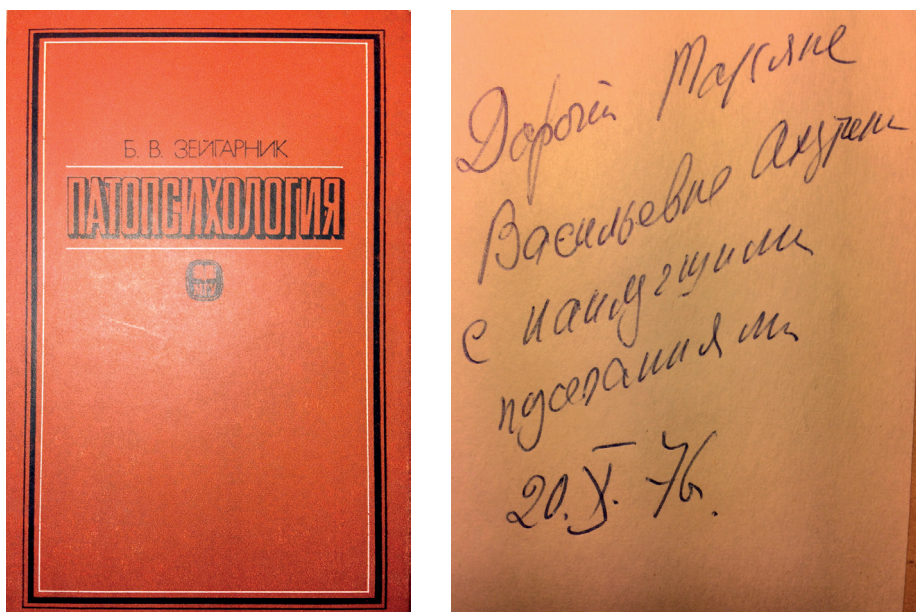 Б. В. ЗЕЙГАРНИК
ПАТОПСИХОЛОГИЯ
Дорогой Татьяне
Васильевне
с наилучшими
пожеланиями
20.X.76.